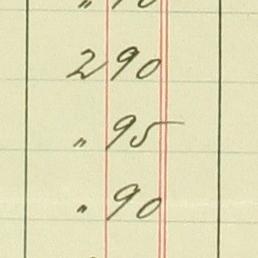 2 90
" 95
" 90